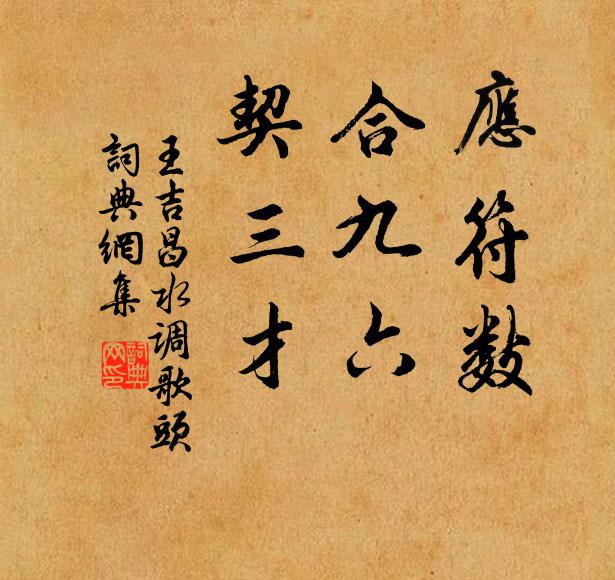 應符數
合九六
契三才
王吉昌水调歌頭
詞典網集
詞典網印